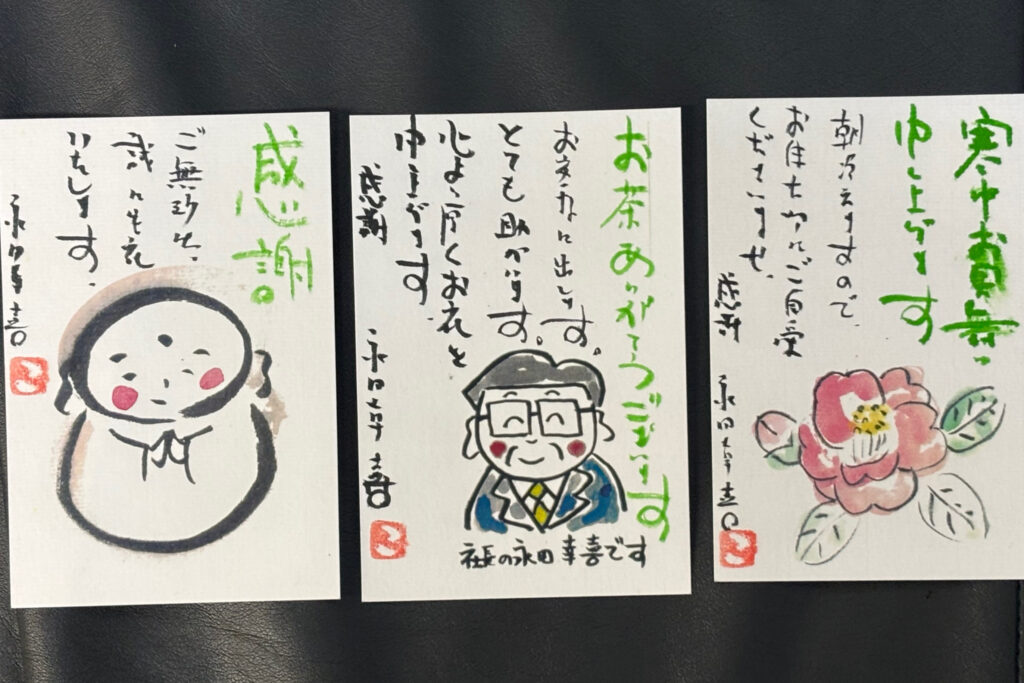 感謝。
ご無沙
いたします。
永田幸喜
お茶ありがとうございます
お客様に出します。
とても助かります。
心より厚くお礼を
申上げます。
感謝
永田幸喜
社長の永田幸喜です
寒中お見舞い
申し上げます
朝冷えますので、
お体大切にご自愛
くださいませ。
感謝
永田幸喜